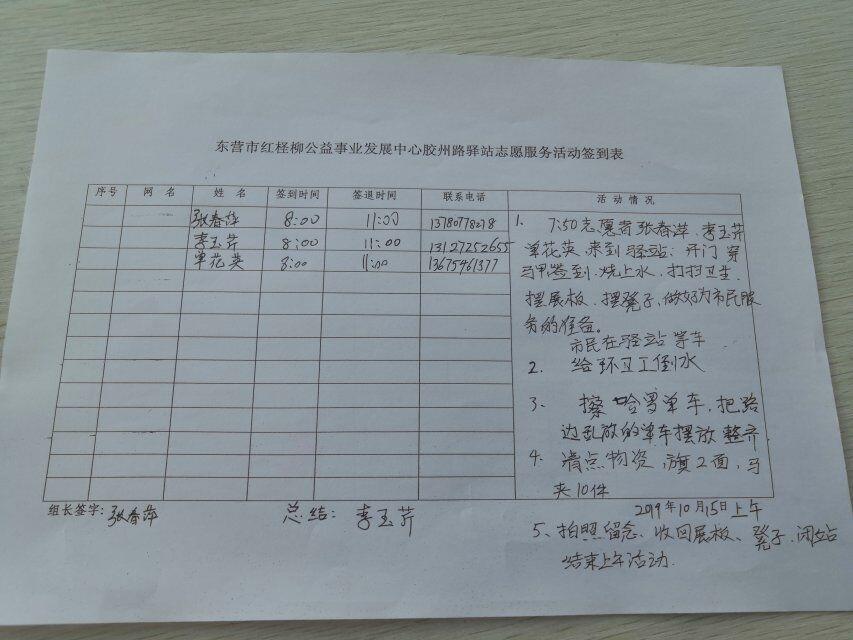 东营市红柽柳公益事业发展中心胶州路驿站志愿服务活动签到表
序号 网名 姓名 签到时间 签退时间 联系电话 活动情况
张春萍 8:00 11:00 13780778278
李玉芹 8:00 11:00 13127252655
单花英 8:00 11:00 13675461377
1. 7:50志愿者张春萍、李玉芹
单花英、来到驿站:开门穿
马甲签到、烧上水、打扫卫生.
摆展板、摆凳子,做好为市民服
务的准备。
市民在驿站等车
2. 给环卫工倒水
3、 擦哈罗单车,把路
边乱放的单车摆放整齐
4. 清点物资,旗2面,马
夹10件
组长签字:张春萍 总结:李玉芹 2019年10月15日上午
5、拍照留念、收回展板、凳子.闭站
结束上午活动.